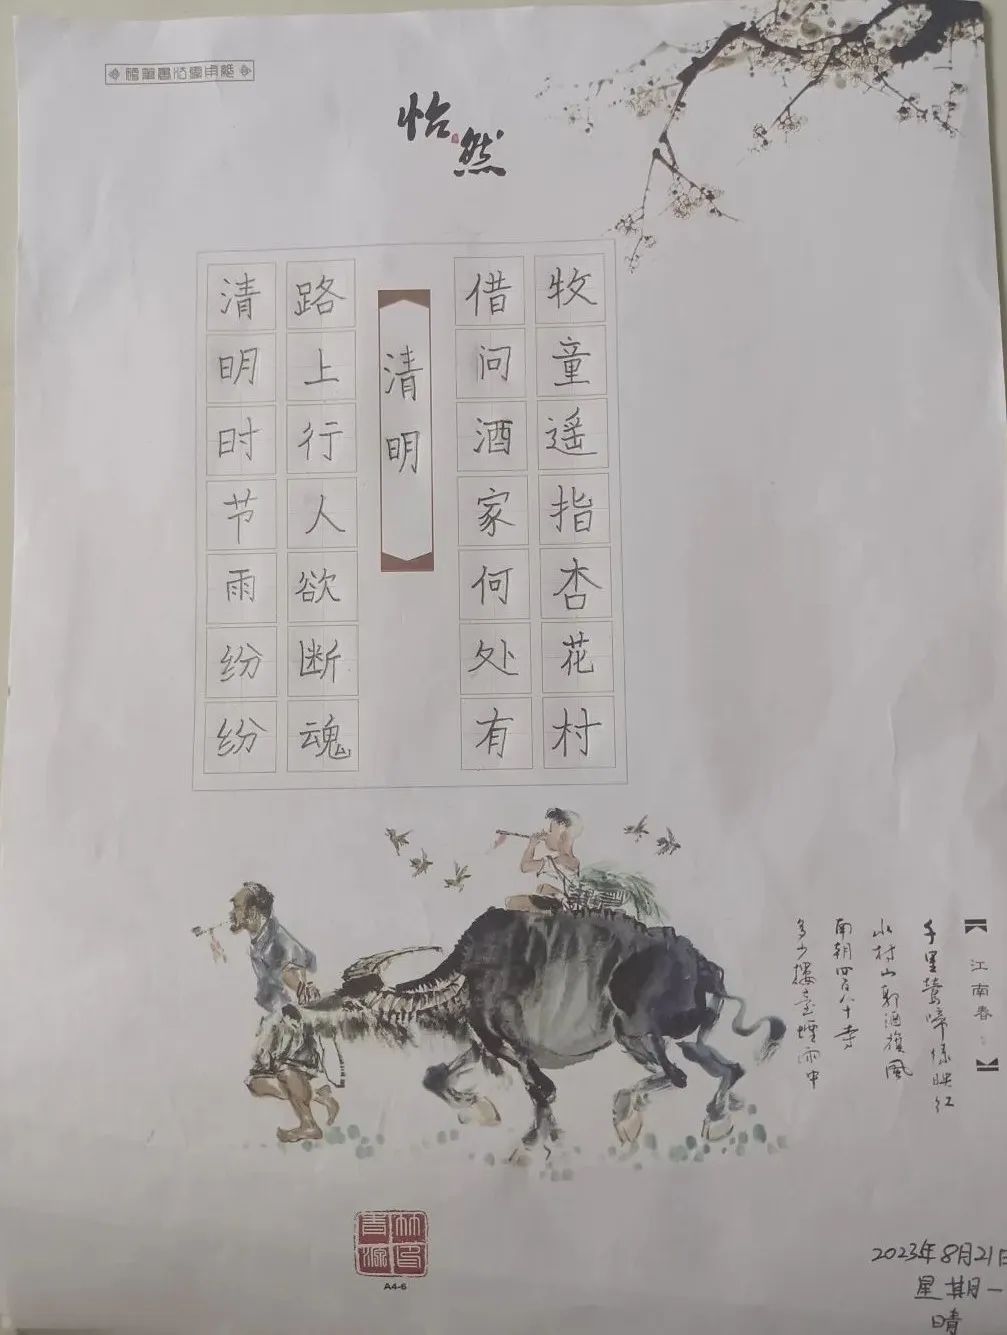 硬筆書法專用紙
怡然
清明时节雨纷纷
路上行人欲断魂
清明
借问酒家何处有
牧童遥指杏花村
【江南春】
千里鶯啼绿映红
水村山郭酒旗風
南朝四百八十寺
多少樓臺煙雨中
A4-6
2023年8月21日
星期一
晴